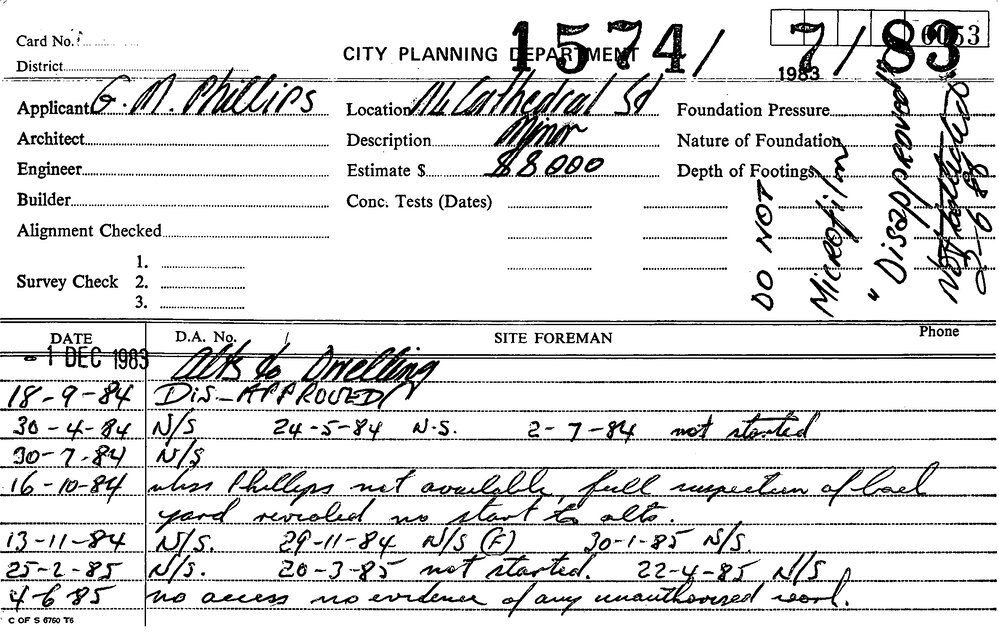 1574/7/83
6053
Card No.
CITY PLANNING DEPARTMENT
District
1983
Applicant G. M. Phillips
Location 114 Cathedral St
Foundation Pressure
Architect
Description Minor
Nature of Foundation
Engineer
Estimate $ $8000
Depth of Footings
Builder
Conc. Tests (Dates)
Alignment Checked
Survey Check
1.
2.
3.
DO NOT
Microfilm
"Disapproved"
DATE D.A. No. SITE FOREMAN Phone
- 1 DEC 1983 Alts to Dwelling
18-9-84 DIS-APPROVED
30-4-84 N/S 24-5-84 N.S. 2-7-84 not started
30-7-84 N/S
16-10-84 Miss Phillips not available, full inspection of back
yard revealed no start to alts.
13-11-84 N/S. 29-11-84 N/S (F) 30-1-85 N/S.
25-2-85 N/S. 20-3-85 not started. 22-4-85 N/S
4-6-85 no access no evidence of any unauthorised work.
C OF S 6760 T6